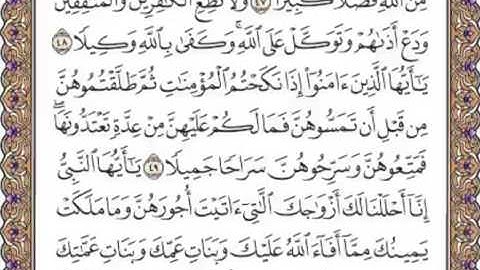 مِّنَ ٱللَّهِ فَضْلًا كَبِيرًا ٤٧ وَلَا تُطِعِ ٱلْكَٰفِرِينَ وَٱلْمُنَٰفِقِينَ
وَدَعْ أَذَىٰهُمْ وَتَوَكَّلْ عَلَى ٱللَّهِ ۚ وَكَفَىٰ بِٱللَّهِ وَكِيلًا ٤٨
يَٰٓأَيُّهَا ٱلَّذِينَ ءَامَنُوٓا۟ إِذَا نَكَحْتُمُ ٱلْمُؤْمِنَٰتِ ثُمَّ طَلَّقْتُمُوهُنَّ
مِن قَبْلِ أَن تَمَسُّوهُنَّ فَمَا لَكُمْ عَلَيْهِنَّ مِنْ عِدَّةٍ تَعْتَدُّونَهَا ۖ
فَمَتِّعُوهُنَّ وَسَرِّحُوهُنَّ سَرَاحًا جَمِيلًا ٤٩ يَٰٓأَيُّهَا ٱلنَّبِىُّ
إِنَّآ أَحْلَلْنَا لَكَ أَزْوَٰجَكَ ٱلَّٰتِىٓ ءَاتَيْتَ أُجُورَهُنَّ وَمَا مَلَكَتْ
يَمِينُكَ مِمَّآ أَفَآءَ ٱللَّهُ عَلَيْكَ وَبَنَاتِ عَمِّكَ وَبَنَاتِ عَمَّٰتِكَ